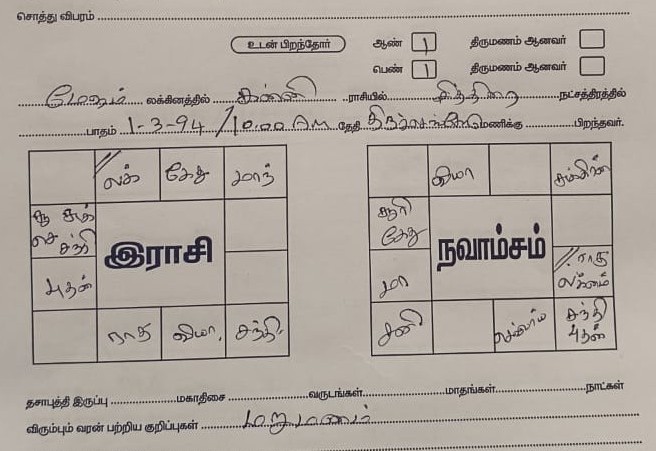 சொத்து விபரம்
உடன் பிறந்தோர் ஆண் 1 திருமணம் ஆனவர்
பெண் 1 திருமணம் ஆனவர்
மேஷம் லக்கினத்தில் கன்னி ராசியில் சித்திரை நட்சத்திரத்தில்
பாதம் 1-3-94 / 10.00 AM தேதி திருச்செந்தூர் மணிக்கு பிறந்தவர்.
லக் கேது மாந் லியா
சூ சுக் சூரி
செ சனி கேது
இராசி நவாம்சம்
புதன் மா // ராகு
லக்னம்
ராகு வியா, சந்தி சனி சந்தி
புதன்
தசாபுத்தி இருப்பு மகாதிசை வருடங்கள் மாதங்கள் நாட்கள்
விரும்பும் வரன் பற்றிய குறிப்புகள் மறுமணம்